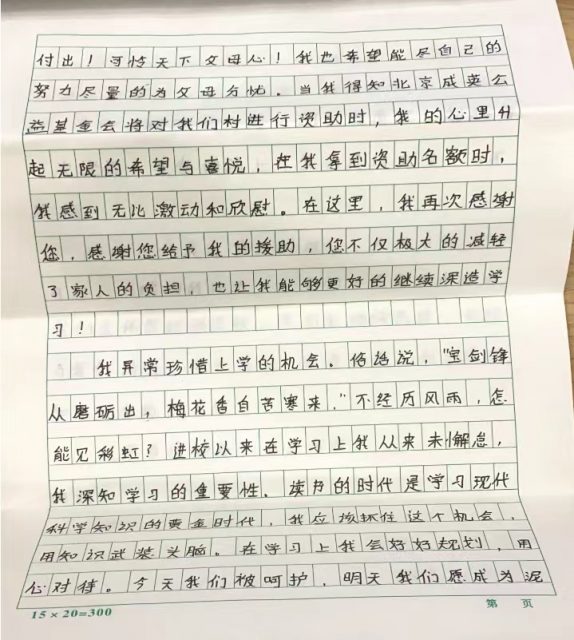 付出！可怜天下父母心！我也希望能尽自己的
努力尽量的为父母分忧。当我得知北京成英公
益基金会将对我们村进行资助时，我的心里升
起无限的希望与喜悦，在我拿到资助名额时，
我感到无比激动和欣慰。在这里，我再次感谢
您，感谢您给予我的援助，您不仅极大的减轻
了家人的负担，也让我能够更好的继续深造学
习！
我异常珍惜上学的机会。俗话说，"宝剑锋
从磨砺出，梅花香自苦寒来，"不经历风雨，怎
能见彩虹？进校以来在学习上我从来未懈怠，
我深知学习的重要性，读书的时代是学习现代
科学知识的黄金时代，我应该抓住这个机会，
用知识武装头脑。在学习上我会好好规划，用
心对待。今天我们被呵护，明天我们愿成为泥
15×20=300 第 页